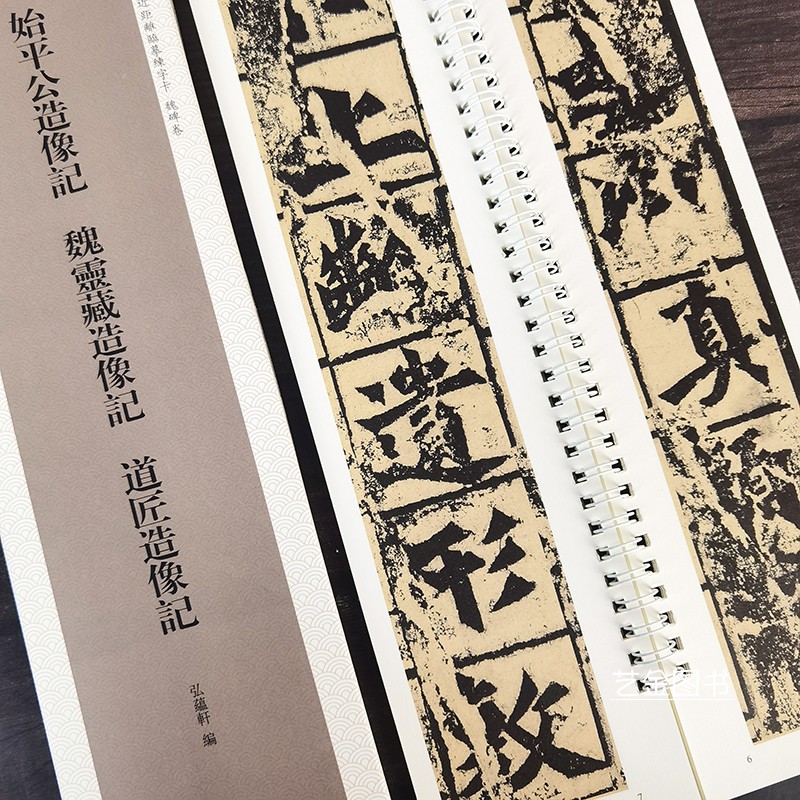 近距離臨摹練字卡 魏碑卷
始平公造像記
魏靈藏造像記
道匠造像記
弘蘊軒 編
是以真顏
6
上齡遺形敷
7
艺金图书